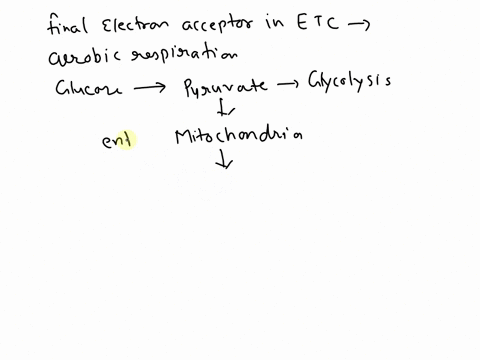 final Electron acceptor in ETC →
aerobic respiration
Glucose → Pyruvate → Glycolysis
↓
ent Mitochondria
↓